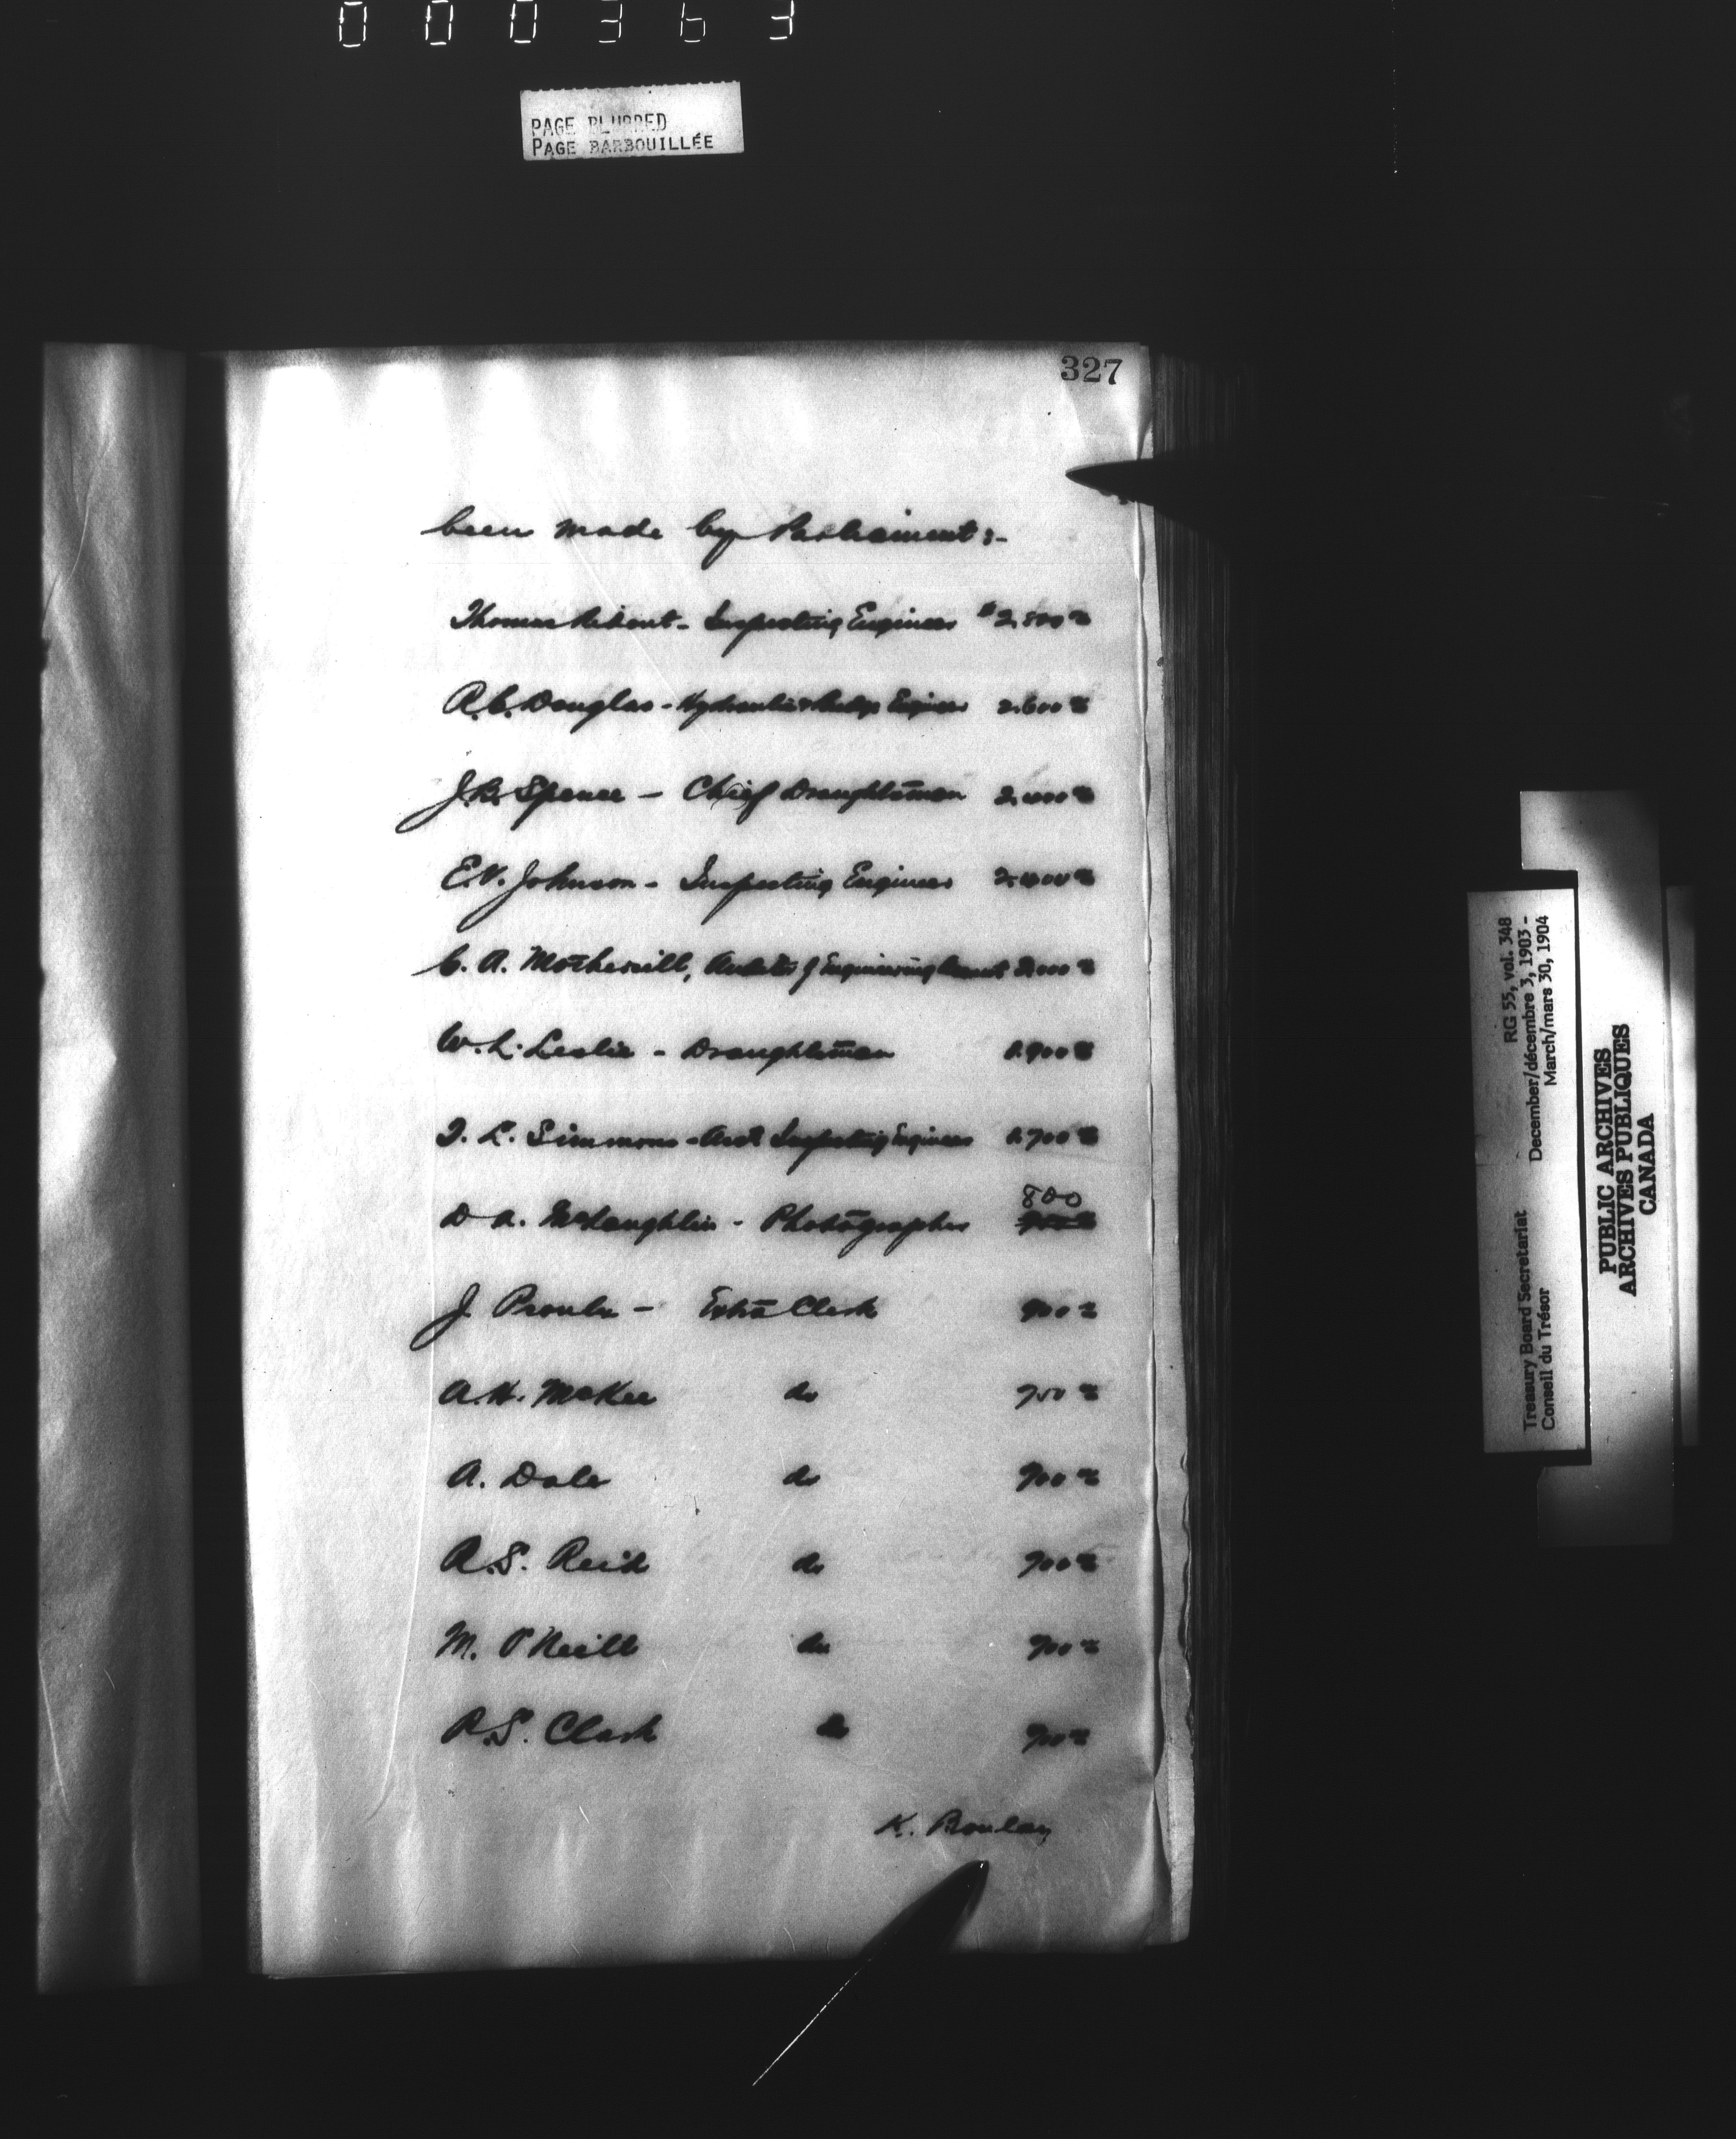 000363
PAGE BLURRED
PAGE BARBOUILLÉE
327
been made by Parliament:-
Thomas Ridout - Inspecting Engineer $2,500 00
R.C. Douglas - Hydraulic & Bridge Engineer 2.600 00
J.B. Spence - Chief Draughtsman 2.000 00
E.V. Johnson - Inspecting Engineer 2.400 00
C. A. Motherwill, of Engineering 2.000 00
W. L. Leslie - Draughtsman 1.400 00
T. L. Simmons - Asst Inspecting Engineer 1.700 00
800
D A. McLaughlin - Photographer
J. Proulx - Extra Clerk 900 00
A.H. McKee do 750 00
A. Dale do 700 00
R.S. Reid do 700 00
M. O'Neill do 700 00
R.S. Clark do 700 00
K. Boulay
Treasury Board Secretariat RG 55, vol. 348
Conseil du Trésor December/décembre 3, 1903 -
March/mars 30, 1904
PUBLIC ARCHIVES
ARCHIVES PUBLIQUES
CANADA